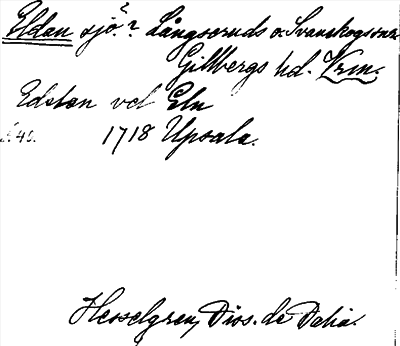 Eldan sjö i Långseruds o. Svanskogs snr
Gillbergs hd. Vrm.
Edsten vel Eln
s. 40. 1718 Upsala.
Hesselgren, Diss. de Dalia.